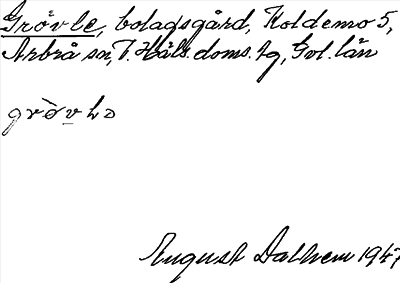 Grövle, bolagsgård, Koldemo 5,
Arbrå sn, V. Häls. doms. tg, Gvl. län
August Dalhem 1947